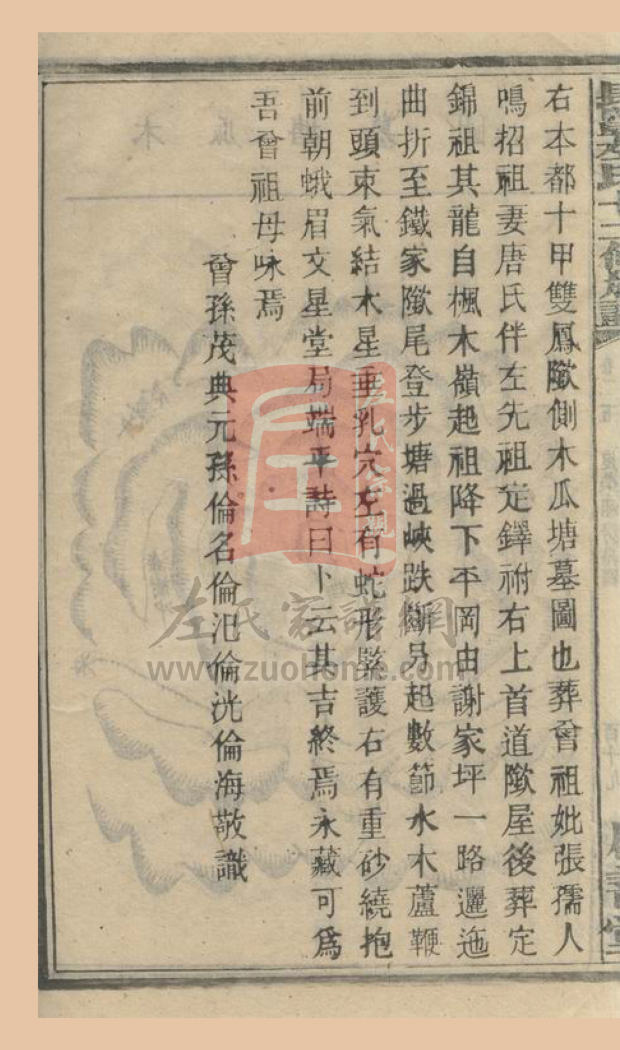 右本都十甲雙鳳𡼏側木瓜塘墓圖也葬曾祖妣張孺人
鳴招祖妻唐氏伴左先祖定鐸祔右上首道𡼏屋後葬定
錦祖其龍自楓木嶺起祖降下平岡由謝家坪一路邐迤
曲折至鐵家𡼏尾登步塘過峽跌斷另起數節水木蘆鞭
到頭束氣結木星垂乳穴左有蛇形墜護右有重砂繞抱
前朝蛾眉文星堂局端平詩曰卜云其吉終焉永藏可爲
吾曾祖母咏焉
曾孫茂典元孫倫名倫汜倫洸倫海敬識
左氏家譜網
www.zuohome.com